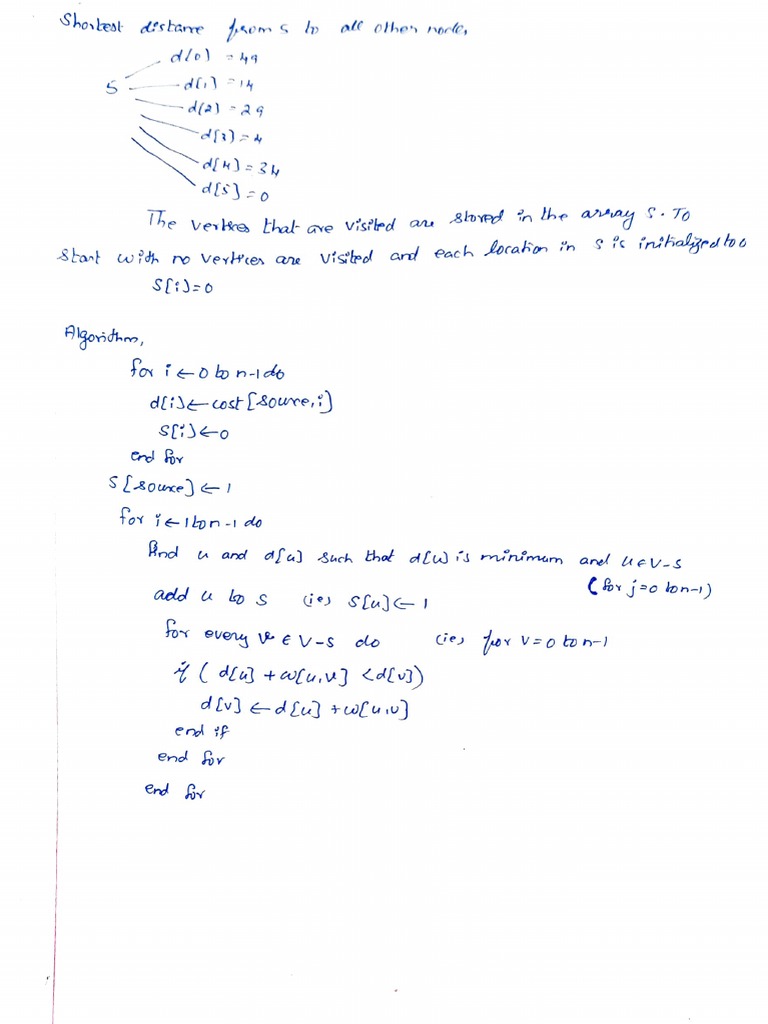 Shortest distance from 5 to all other node,
d[0] = 49
5 d[1] = 14
d[2] = 29
d[3] = 4
d[4] = 34
d[5] = 0
The vertices that are visited are stored in the array S. To
start with no vertices are visited and each location in S is initialized to 0
S[i]=0
Algorithm,
for i ← 0 to n-1 do
d[i] ← cost[source,i]
S[i] ← 0
end for
S[source] ← 1
for i ← 1 to n-1 do
find u and d[u] such that d[u] is minimum and u ∈ V-S
(for j=0 to n-1)
add u to S (ie) S[u] ← 1
for every v ∈ V-S do (ie) for v=0 to n-1
if (d[u] + w[u,v] < d[v])
d[v] ← d[u] + w[u,v]
end if
end for
end for